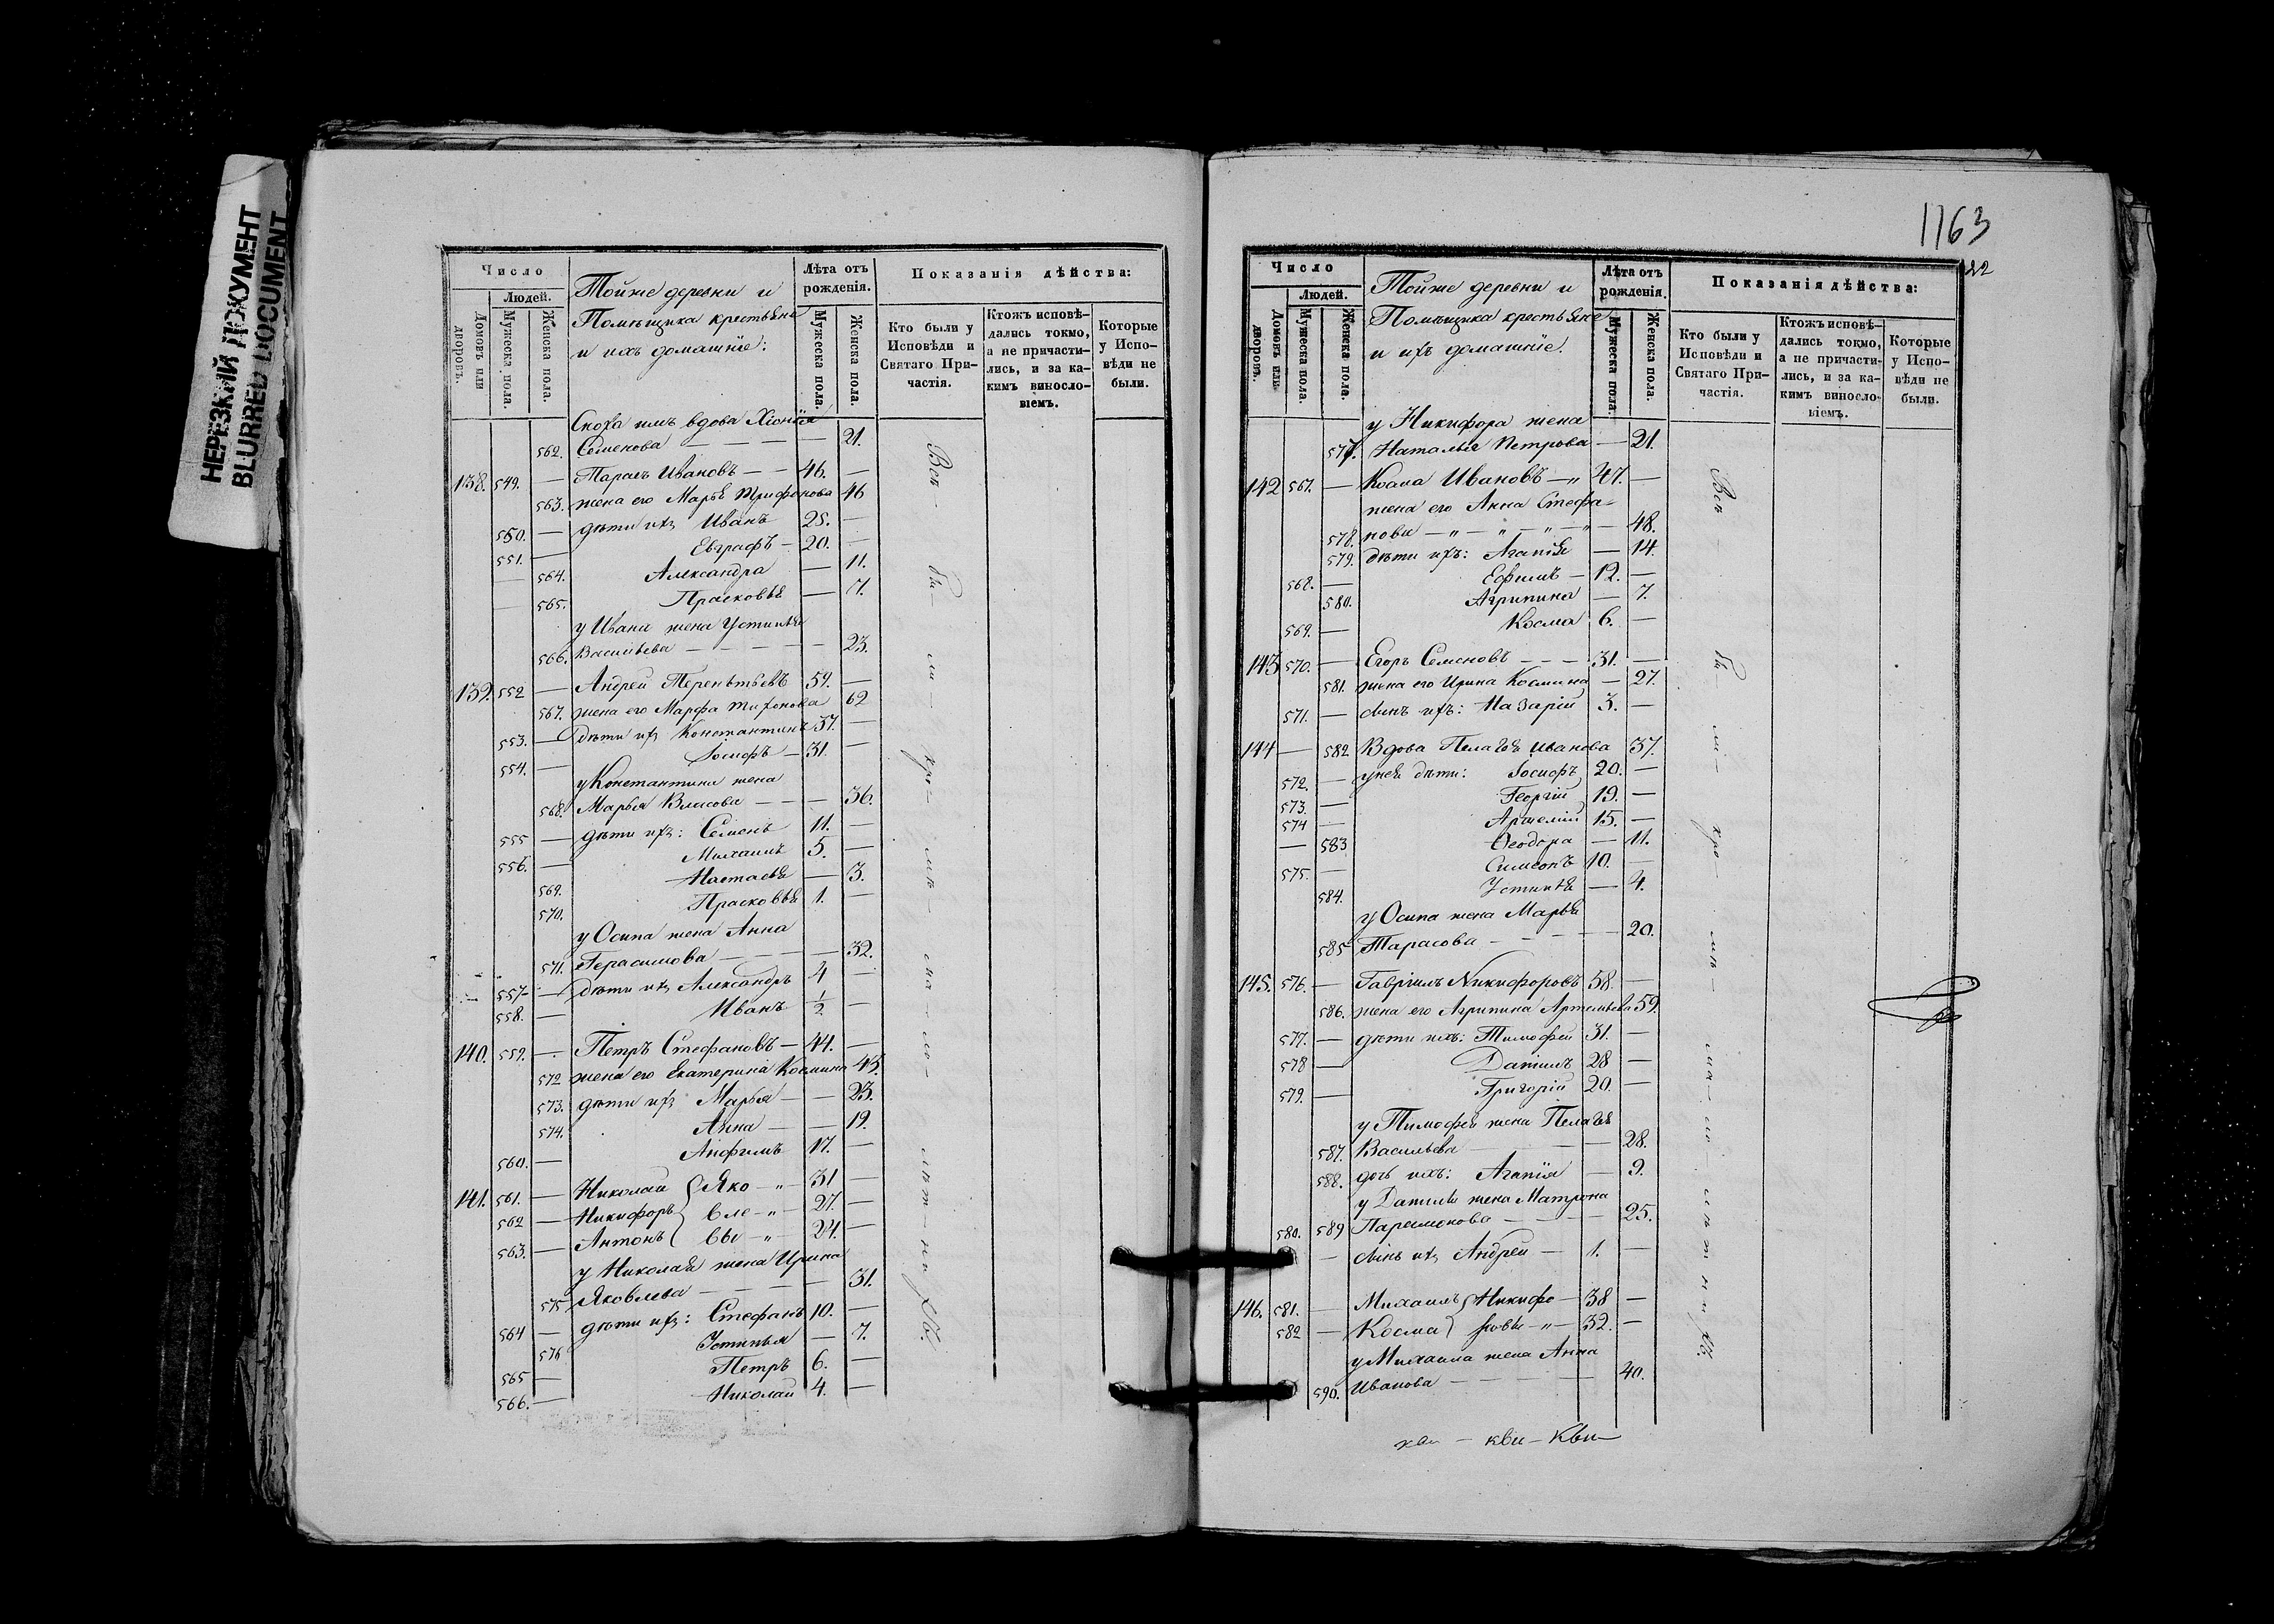 НЕРЕЗКИЙ ДОКУМЕНТ
BLURRED DOCUMENT
Число
Людей.
Домовъ или дворовъ.
Мужеска пола.
Женска пола.
Тойже деревни и
Помѣщика крестьяне
и ихъ домашніе:
Лѣта отъ рожденія.
Мужеска пола.
Женска пола.
Показанія дѣйства:
Кто были у Исповѣди и Святаго Причастія.
Ктожъ исповѣдались токмо, а не причастились, и за какимъ винословіемъ.
Которые у Исповѣди не были.
Сноха имъ вдова Хіонія
562. Семенова — 21.
138. 549. — Тарасъ Ивановъ — 46. —
563. жена его Марья Трифонова 46
550. — дѣти ихъ Иванъ 25. —
551. — Евграфъ — 20. —
— 564. Александра — 11.
— 565. Прасковья — 7.
у Ивана жена Устинья
566. Васильева — 23.
139. 552 — Андрей Терентьевъ 59. —
567. жена его Марфа Тихонова 62
553. — дѣти ихъ Константинъ 37. —
554. — Іосифъ — 31. —
у Константина жена
568. Марья Власова — 36.
555 — дѣти ихъ: Семенъ 11. —
556. — Михаилъ 5. —
569. Настасья — 3.
570. Прасковья 1. —
у Осипа жена Анна
571. Герасимова — 32.
557 — дѣти ихъ Александръ 4 —
558. — Иванъ ½ —
140. 559. — Петръ Стефановъ — 44. —
572 жена его Екатерина Космина 45.
573. дѣти ихъ Марья — 23.
574. Анна — 19.
560. — Анфимъ 17. —
141. 561. — Николай { Яко — 31 —
562 — Никифоръ } вле — 27. —
563. — Антонъ { вы — 24. —
у Николая жена Ирина
575 Яковлева — 31.
564 — дѣти ихъ: Стефанъ 10. —
576 Устинья — 7.
565 — Петръ 6. —
566. — Николай 4. —
Всѣ - бы - ли - кро - мѣ - ма - ло -
1163
22
Число
Людей.
Домовъ или дворовъ.
Мужеска пола.
Женска пола.
Тойже деревни и
Помѣщика крестьяне
и ихъ домашніе.
Лѣта отъ рожденія.
Мужеска пола.
Женска пола.
Показанія дѣйства:
Кто были у Исповѣди и Святаго Причастія.
Ктожъ исповѣдались токмо, а не причастились, и за какимъ винословіемъ.
Которые у Исповѣди не были.
у Никифора жена
577. Наталья Петрова — 21.
142 567. — Косма Ивановъ — 47. —
жена его Анна Стефа-
578. нова — 48.
579. дѣти ихъ: Агапія — 14.
568. — Ефимъ — 12. —
580. Агрипина — 7.
569. — Косма 6. —
143 570. — Егоръ Семеновъ — 31. —
581. жена его Ирина Космина — 27.
571. — сынъ ихъ: Назарій 3. —
144 — 582 Вдова Пелагея Иванова 37.
572. — у нея дѣти: Іосифъ 20. —
573. — Георгій 19. —
574 — Артемій 15. —
— 583 Ѳеодора — 11.
575. — Симеонъ 10. —
584. Устинья — 4.
у Осипа жена Марья
585 Тарасова — 20.
145. 576. — Гавріилъ Никифоровъ 58. —
586. жена его Агрипина Артемьева 59.
577. — дѣти ихъ: Тимофей 31. —
578 — Даніилъ 28 —
579. — Григорій 20. —
у Тимофея жена Пелагея
587. Васильева — 28.
588. дочь ихъ: Агапія — 9.
у Даніила жена Матрона
589 Парамонова — 25.
580. — сынъ ихъ Андрей — 1. —
146. 581. — Михаилъ { Никифо — 38 —
582 — Косма } ровы — 32. —
у Михаила жена Анна
590. Иванова — 40.
Всѣ - бы - ли - кро - мѣ - ма - ло -